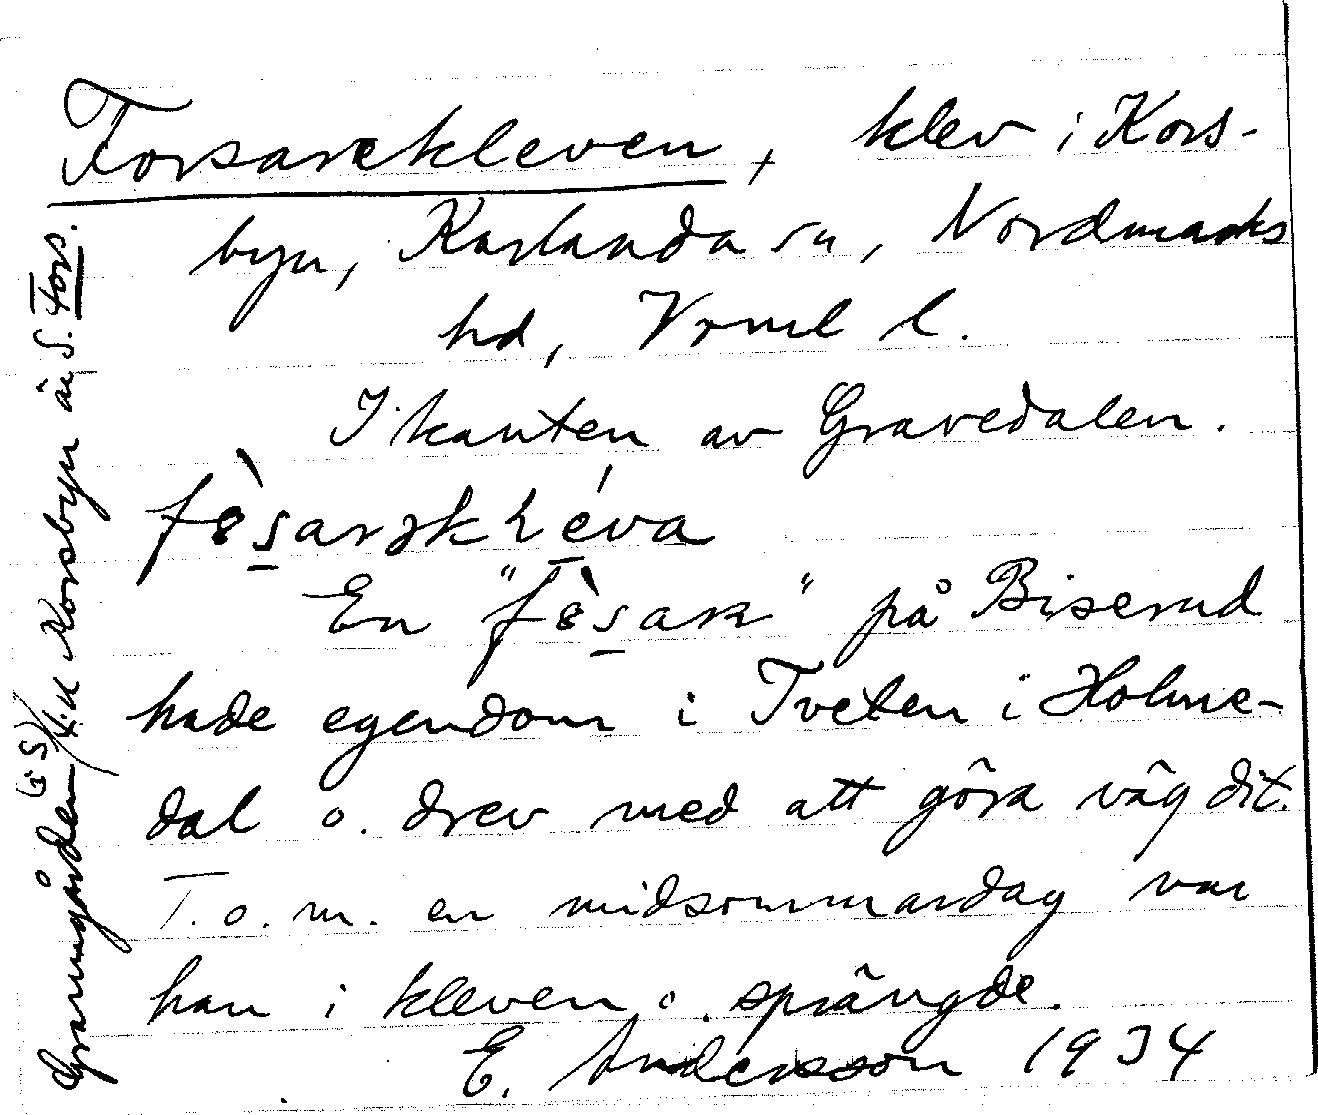 Forsarekleven, klev i Kors-
byn, Karlanda sn, Nordmarks
hd, Vrml l.
I kanten av Gravedalen.
En " " på Biserud
hade egendom i Tveten i Holme-
dal o. drev med att göra väg dit.
T.o.m. en midsommardag var
han i kleven o. sprängde.
E. Andersson 1934
Granngården (i S) till Korsbyn är S. Fors.